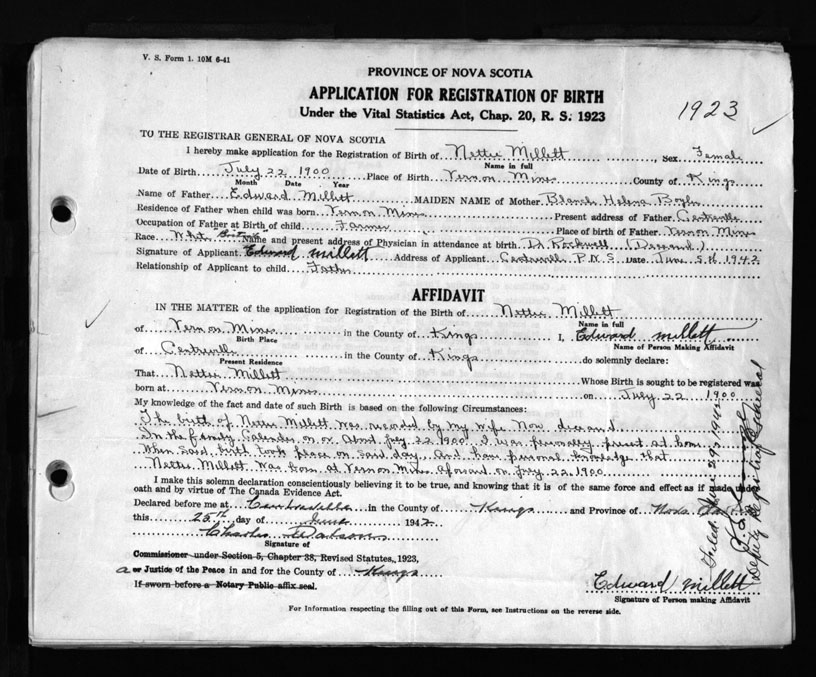 V. S. Form 1. 10M 6-41
PROVINCE OF NOVA SCOTIA
APPLICATION FOR REGISTRATION OF BIRTH
Under the Vital Statistics Act, Chap. 20, R. S. 1923
1923
TO THE REGISTRAR GENERAL OF NOVA SCOTIA
I hereby make application for the Registration of Birth of Nettie Millett, Sex Female
Name in full
Date of Birth July 22 1900 Place of Birth Vernon Mines County of Kings
Month Date Year
Name of Father Edward Millett MAIDEN NAME of Mother Blanch Helena
Residence of Father when child was born Vernon Mines Present address of Father Centreville
Occupation of Father at Birth of child Farmer Place of birth of Father Vernon Mines
Race White British Name and present address of Physician in attendance at birth Dr Rockwell (Deceased)
Signature of Applicant Edward Millett Address of Applicant Centreville P. N. S Date June 5th 1942
Relationship of Applicant to child Father
AFFIDAVIT
IN THE MATTER of the application for Registration of the Birth of Nettie Millett
Name in full
of Vernon Mines in the County of Kings I, Edward Millett
Birth Place Name of Person Making Affidavit
of Centreville in the County of Kings do solemnly declare:
Present Residence
That Nettie Millett Whose Birth is sought to be registered was
born at Vernon Mines on July 22 1900
My knowledge of the fact and date of such Birth is based on the following Circumstances:
The birth of Nettie Millett was recorded by my wife Now deceased
In the family Calender on or About July 22 1900. I was personally present at home
When said birth took place on said day and have personal knowledge that
Nettie Millett was born at Vernon Mines aforesaid on July 22 1900
I make this solemn declaration conscientiously believing it to be true, and knowing that it is of the same force and effect as if made under
oath and by virtue of The Canada Evidence Act.
Declared before me at in the County of Kings and Province of Nova Scotia
this 25th day of June 1942
Charles
Signature of
Commissioner under Section 5, Chapter 38, Revised Statutes, 1923,
a or Justice of the Peace in and for the County of Kings
If sworn before a Notary Public affix seal.
Edward Millett
Signature of Person making Affidavit
For Information respecting the filling out of this Form, see Instructions on the reverse side.
Filed June 29 1942
Deputy Registrar General